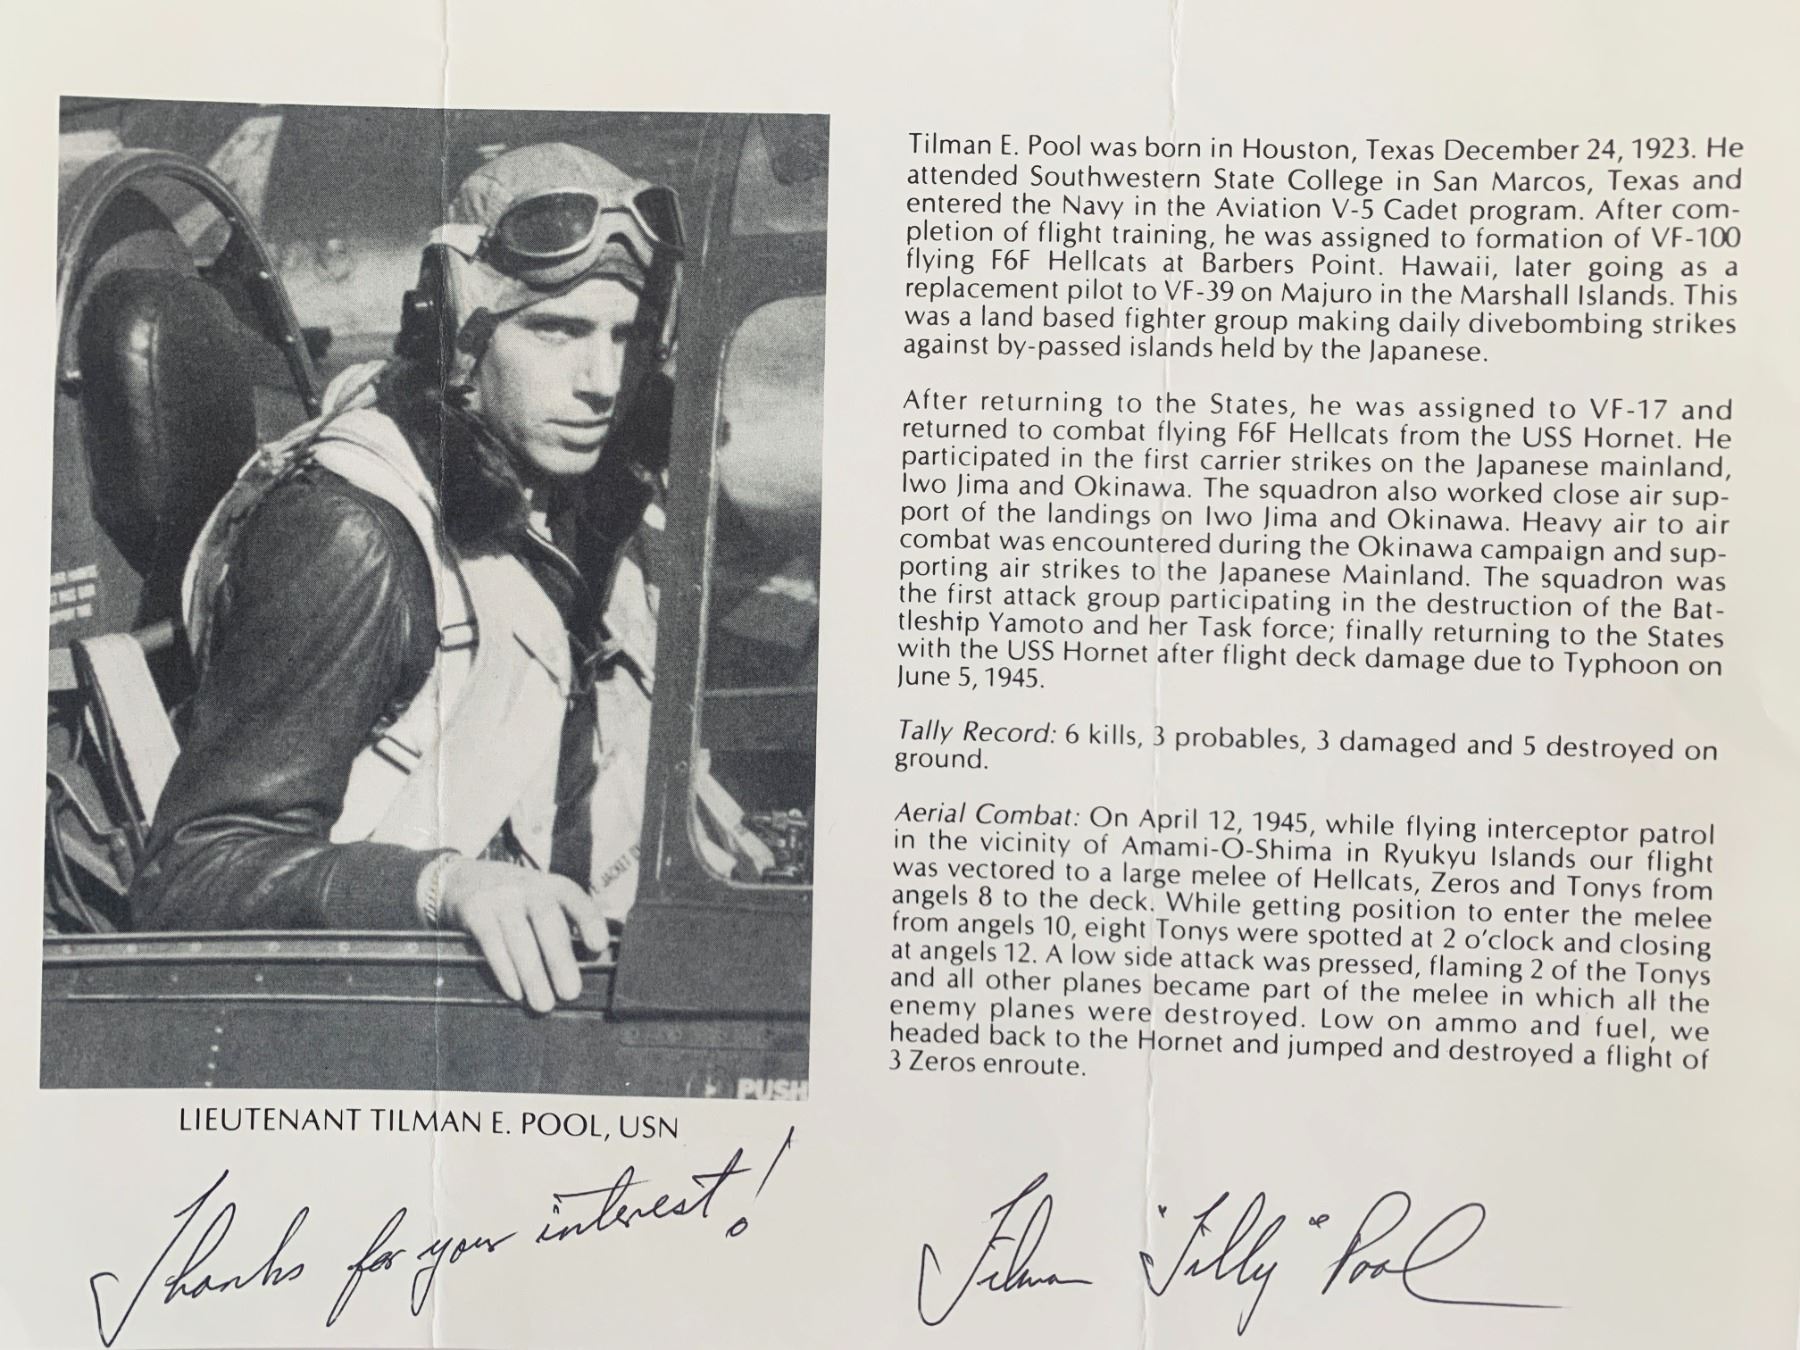 Tilman E. Pool was born in Houston, Texas December 24, 1923. He
attended Southwestern State College in San Marcos, Texas and
entered the Navy in the Aviation V-5 Cadet program. After com-
pletion of flight training, he was assigned to formation of VF-100
flying F6F Hellcats at Barbers Point. Hawaii, later going as a
replacement pilot to VF-39 on Majuro in the Marshall Islands. This
was a land based fighter group making daily divebombing strikes
against by-passed islands held by the Japanese.
After returning to the States, he was assigned to VF-17 and
returned to combat flying F6F Hellcats from the USS Hornet. He
participated in the first carrier strikes on the Japanese mainland,
Iwo Jima and Okinawa. The squadron also worked close air sup-
port of the landings on Iwo Jima and Okinawa. Heavy air to air
combat was encountered during the Okinawa campaign and sup-
porting air strikes to the Japanese Mainland. The squadron was
the first attack group participating in the destruction of the Bat-
tleship Yamoto and her Task force; finally returning to the States
with the USS Hornet after flight deck damage due to Typhoon on
June 5, 1945.
Tally Record: 6 kills, 3 probables, 3 damaged and 5 destroyed on
ground.
Aerial Combat: On April 12, 1945, while flying interceptor patrol
in the vicinity of Amami-O-Shima in Ryukyu Islands our flight
was vectored to a large melee of Hellcats, Zeros and Tonys from
angels 8 to the deck. While getting position to enter the melee
from angels 10, eight Tonys were spotted at 2 o'clock and closing
at angels 12. A low side attack was pressed, flaming 2 of the Tonys
and all other planes became part of the melee in which all the
enemy planes were destroyed. Low on ammo and fuel, we
headed back to the Hornet and jumped and destroyed a flight of
3 Zeros enroute.
PUSH
LIEUTENANT TILMAN E. POOL, USN
Thanks for your interest!
Tilman "Tilly" Pool